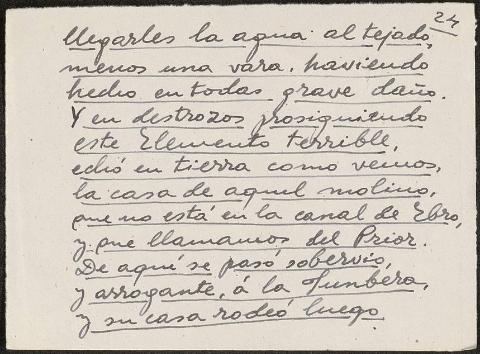 24
llegarles la agua al tejado,
menos una vara. haviendo
hecho en todas grave daño.
Y en destrozos prosiguiendo
este Elemento terrible,
echó en tierra como vemos,
la casa de aquel molino,
que no está en la canal de Ebro,
y que llamamos del Prior.
De aquí se pasó sobervio,
y arrogante, á la Junbéra,
y su casa rodeó luego